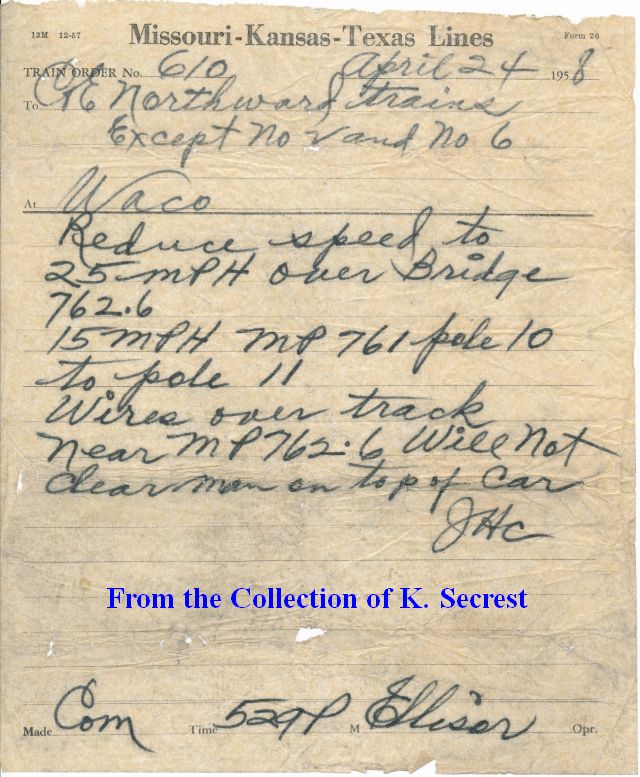 12M 12-57 Missouri-Kansas-Texas Lines Form 26
TRAIN ORDER No. 610 April 24 1958
To C&E Northward trains
Except No 2 and No 6
At Waco
Reduce speed to
25 MPH over Bridge
762.6
15 MPH MP 761 pole 10
to pole 11
Wires over track
near MP 762.6 Will Not
clear man on top of Car
JHC
From the Collection of K. Secrest
Made Com Time 529P M Ellisor Opr.